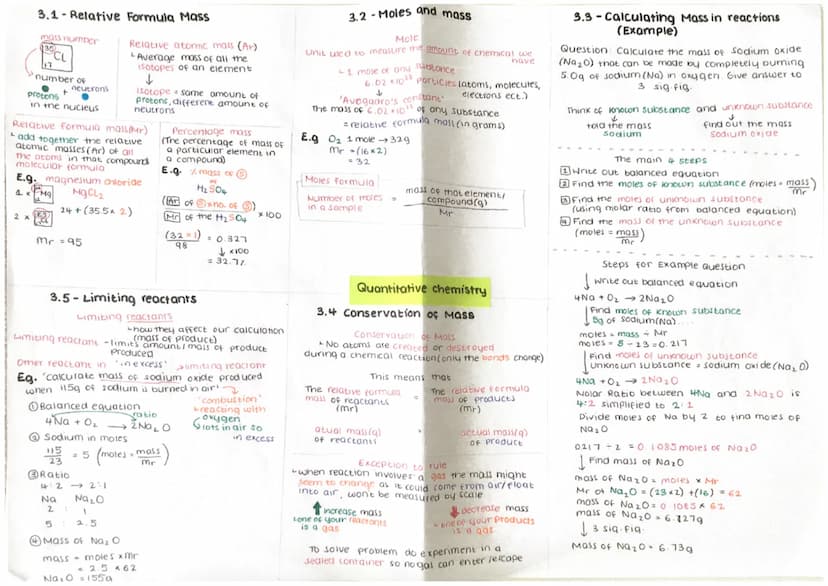 3.1 - Relative Formula Mass
mass number
35
Cl
17
number of
protons + neutrons
in the nucleus
Relative atomic mass (Ar)
↳ Average mass of all the
isotopes of an element
↓
isotope = same amount of
protons, different amount of
neutrons
Relative formula mass (Mr)
↳ add together the relative
atomic masses (Ar) of all
the atoms in that compound
molecular formula
E.g. magnesium chloride
MgCl2
1 × Mg
24 + (35.5 × 2)
2 ×
Mr = 95
Percentage mass
(The percentage of mass of
a particular element in
a compound)
E.g. % mass of S
H2SO4
(Ar of S × no. of S)
Mr of the H2SO4 × 100
(32 × 1)
98
= 0.327
↓ × 100
= 32.7%
3.2 - Moles and mass
Mole
Unit used to measure the amount of chemical we
have
↳ 1 mole of any substance
6.02 × 10²³ particles (atoms, molecules,
electrons ect.)
↓
'Avogadro's constant'
The mass of 6.02 × 10²³ of any substance
= relative formula mass (in grams)
E.g O2 1 mole → 32g
Mr = (16 × 2)
= 32
Moles formula
Number of moles
in a sample
= mass of that element/
compound (g)
Mr
3.3 - Calculating Mass in reactions
(Example)
Question: Calculate the mass of sodium oxide
(Na2O) that can be made by completely burning
5.0g of sodium (Na) in oxygen. Give answer to
3 sig.fig.
Think of known substance and unknown substance
told the mass
sodium
find out the mass
sodium oxide
The main 4 steps
1 Write out balanced equation
2 Find the moles of known substance (moles = mass/mr)
3 Find the moles of unknown substance
(using molar ratio from balanced equation)
4 Find the mass of the unknown substance
(moles = mass/mr)
Steps for Example question
↓ Write out balanced equation
4Na + O2 → 2Na2O
↓ Find moles of known substance
5g of sodium (Na)....
moles = mass ÷ Mr
moles = 5 ÷ 23 = 0.217
↓ Find moles of unknown substance
Unknown substance = sodium oxide (Na2O)
4Na + O2 → 2Na2O
Molar Ratio between 4Na and 2Na2O is
4:2 simplified to 2:1
Divide moles of Na by 2 to find moles of
Na2O
0.217 ÷ 2 = 0.1085 moles of Na2O
↓ Find mass of Na2O
mass of Na2O = moles × Mr
Mr of Na2O = (23 × 2) + (16) = 62
mass of Na2O = 0.1085 × 62
mass of Na2O = 6.727g
↓ 3 sig.fig.
Mass of Na2O = 6.73g
Quantitative chemistry
3.5 - Limiting reactants
Limiting reactants
↳ how they affect our calculation
(mass of product)
Limiting reactant - limits amount/mass of product
produced
Other reactant in 'in excess' → limiting reactant
Eg. 'calculate mass of sodium oxide produced
when 115g of sodium is burned in air'
'combustion'
↳ reacting with
oxygen
↳ lots in air so
in excess
① Balanced equation
ratio
4Na + O2 → 2Na2O
② Sodium in moles
115/23 = 5 (moles = mass/mr)
③ Ratio
4:2 → 2:1
Na Na2O
2 : 1
5 : 2.5
④ Mass of Na2O
mass = moles × mr
= 2.5 × 62
Na2O = 155g
3.4 Conservation of Mass
Conservation of Mass
↳ No atoms are created or destroyed
during a chemical reaction (only the bonds change)
This means that
The relative formula
mass of reactants
(mr)
=
The relative formula
mass of products
(mr)
atual mass (g)
of reactants
actual mass (g)
of product
Exception to rule
↳ When reaction involves a gas the mass might
seem to change as it could come from air/float
into air, won't be measured by scale
increase mass
↳ one of your reactants
is a gas
decrease mass
↳ one of your products
is a gas
To solve problem do experiment in a
sealed container so no gas can enter/escape